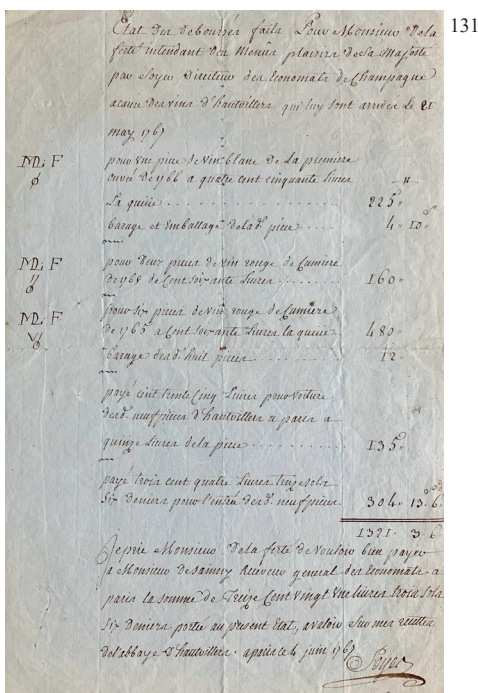 131
Etat des debourses faits Pour Monsieur De la
ferté intendant des Menus plaisirs de sa Majesté
par Soyer Directeur des Economats de Champagne
acause des vins d'hautvillers qui luy sont arrivés Le 21
may 1767
ML: F pour une piece de vin blanc de La premiere
cuvée de 1766 a quatre cent cinquante Livres
La queüe ........ 225"
barage et Emballage de lad. piece .... 4" 10"
ML: F pour deux pieces de vin rouge de Cumiere
de 1765 de Cent soixante Livres ..... 160"
ML: F pour six pieces de vin rouge de Cumiere
de 1765 a Cent soixante Livres la queüe .. 480"
barage desd. huit pieces ........ 12"
payé cent trente Cinq Livres pour voiture
desd. neuf pieces d'hautvillers a paris a
quinze Livres de la piece .......... 135"
payé trois cent quatre Livres treize sols
six deniers pour l'entrée desd. neuf pieces 304" 13. 6
1321. 3 6
Je prie Monsieur De la ferté de vouloir bien payer
a Monsieur de Receveur general des Economats a
paris la somme de Treize Cent vingt une livres trois sols
six deniers portée au present Etat, a valoir sur mes recettes
de l'abbaye d'hautvillers. a ce 4 juin 1767
Soyer